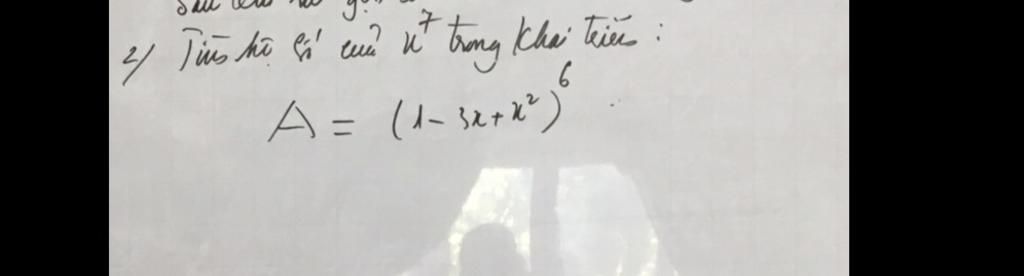 2) Tìm hệ số của x^7 trong khai triển :
A = (1 - 3x + x²)^6